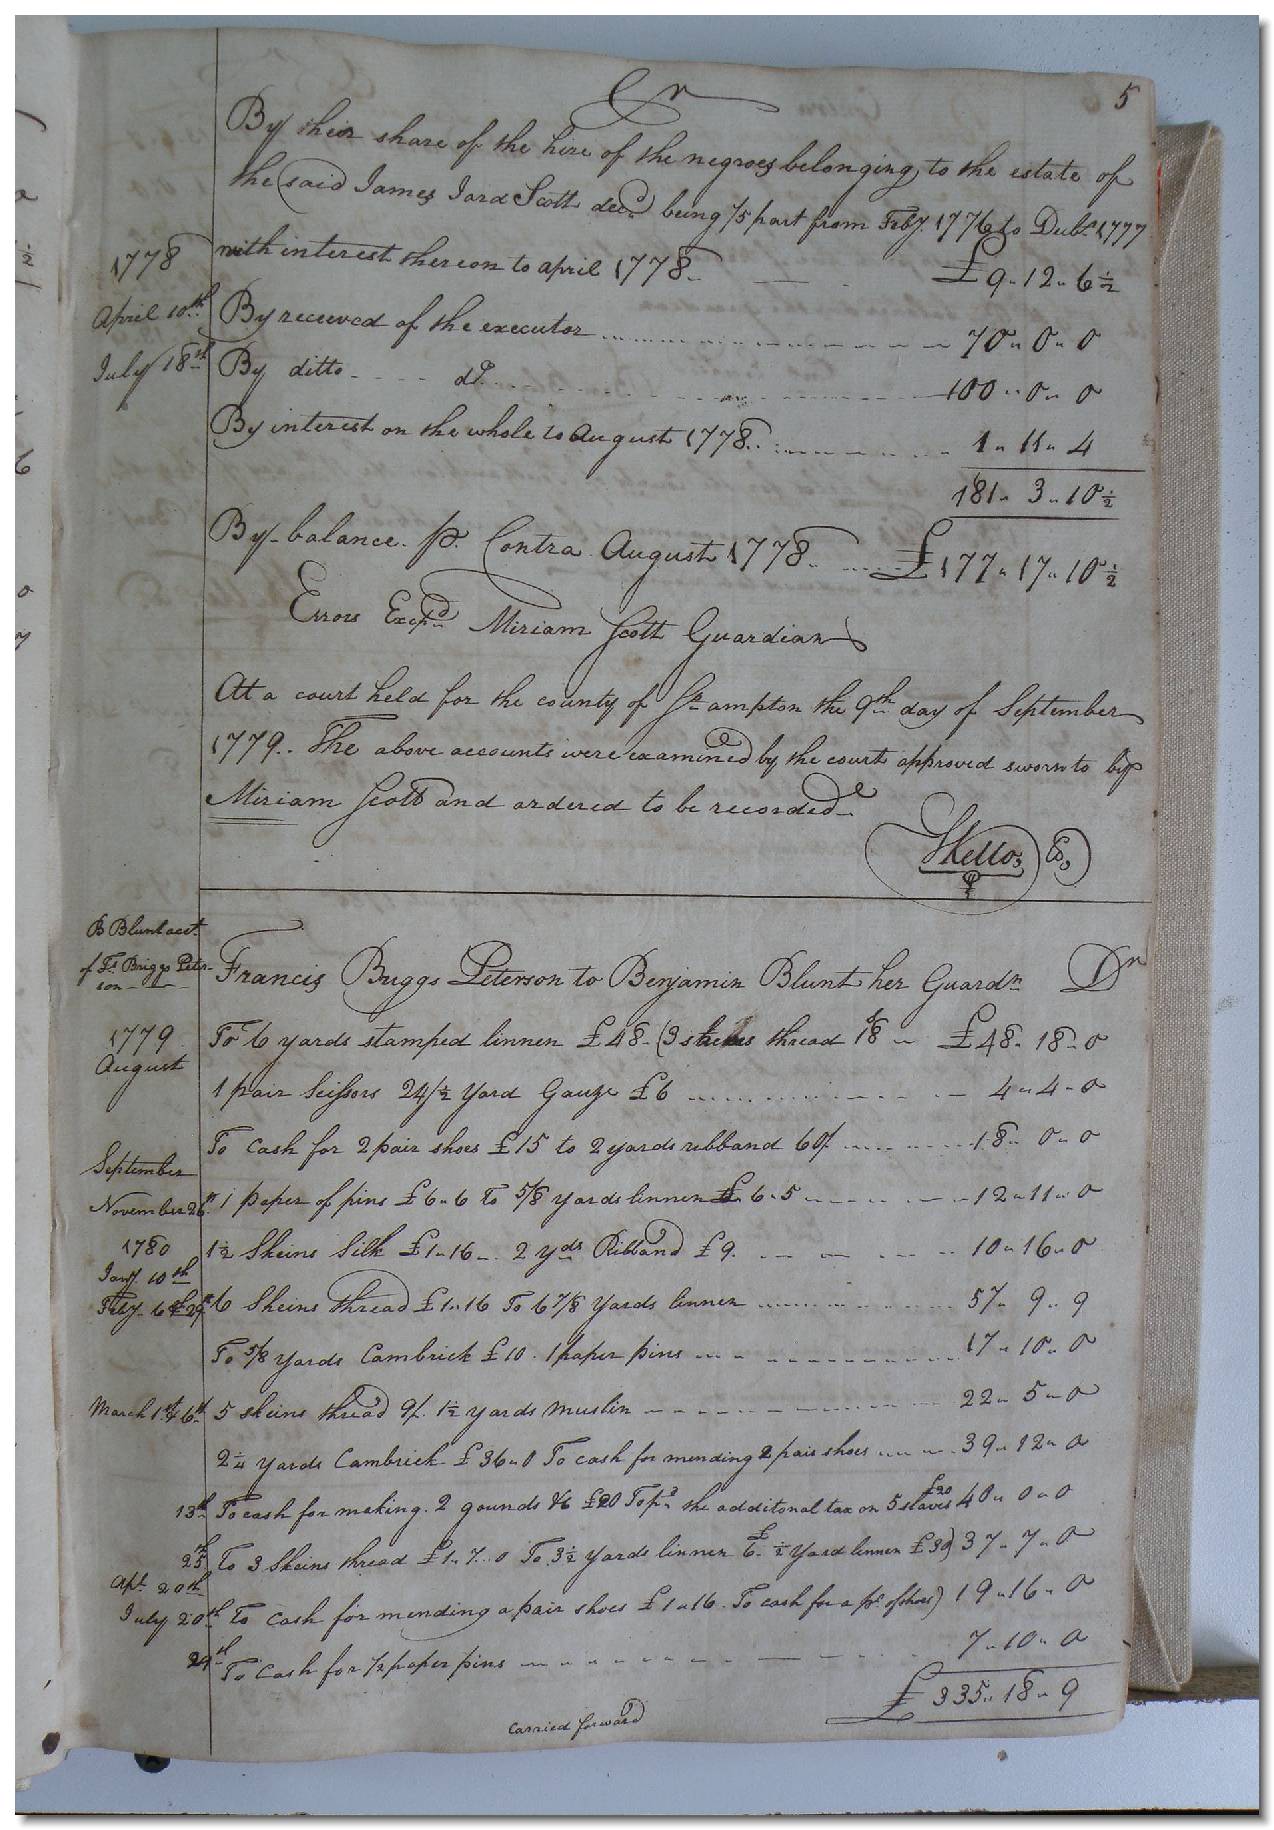 5
Cr
By their share of the hire of the negroes belonging to the estate of
the said James Jord Scott decd being 1/5 part from Feby. 1776 to Decbr. 1777
1778 with interest thereon to april 1778 £9 " 12 " 6 1/2
April 10th By received of the executor 70 " 0 " 0
July 18th By ditto do. 100 " 0 " 0
By interest on the whole to August 1778 1 " 11 " 4
181 " 3 " 10 1/2
By balance p. Contra August 1778 £177 " 17 " 10 1/2
Errors Excpd. Miriam Scott Guardian
At a court held for the county of So. ampton the 9th day of September
1779. The above accounts were examined by the court approved sworn to by
Miriam Scott and ordered to be recorded
B Blunt acct.
of Fs. Briggs Peter-
son
Francis Buggs Peterson to Benjamin Blunt her Guardn Dr
1779 To 6 yards stamped linnen £48 (3 thread 18 £48 " 18 " 0
August 1 pair Scissors 24/ 1/2 Yard Gauze £6 4 " 4 " 0
September To Cash for 2 pair shoes £15 to 2 yards ribband 60/ 18 " 0 " 0
November 26th 1 paper of pins £6 " 6 To 5/8 yards linnen £6 " 5 12 " 11 " 0
1780
Jany 10th 1 1/2 Skeins Silk £1 " 16 2 yds Ribband £9 10 " 16 " 0
Feby. 6 & 29th 6 Skeins thread £1 " 16 To 6 7/8 Yards linnen 57 " 9 " 9
To 5/8 yards Cambrick £10. 1 paper pins 17 " 10 " 0
March 1st & 6th 5 skeins thread 9/. 1 1/2 yards Muslin 22 " 5 " 0
2 1/4 yards Cambrick £36 " 0 To cash for mending 2 pair shoes 39 " 12 " 0
13th To cash for making 2 gounds £20 To pd. the additonal tax on 5 slaves £20 40 " 0 " 0
25th To 3 Skeins thread £1 " 7 " 0 To 3 1/2 yards linnen £6 1/2 yard linnen £30) 37 " 7 " 0
Apl. 20th
July 20th To Cash for mending a pair shoes £1 " 16. To cash for a pr. of shoes) 19 " 16 " 0
24th To Cash for 1/2 paper pins 7 " 10 " 0
£335 " 18 " 9
Carried forward